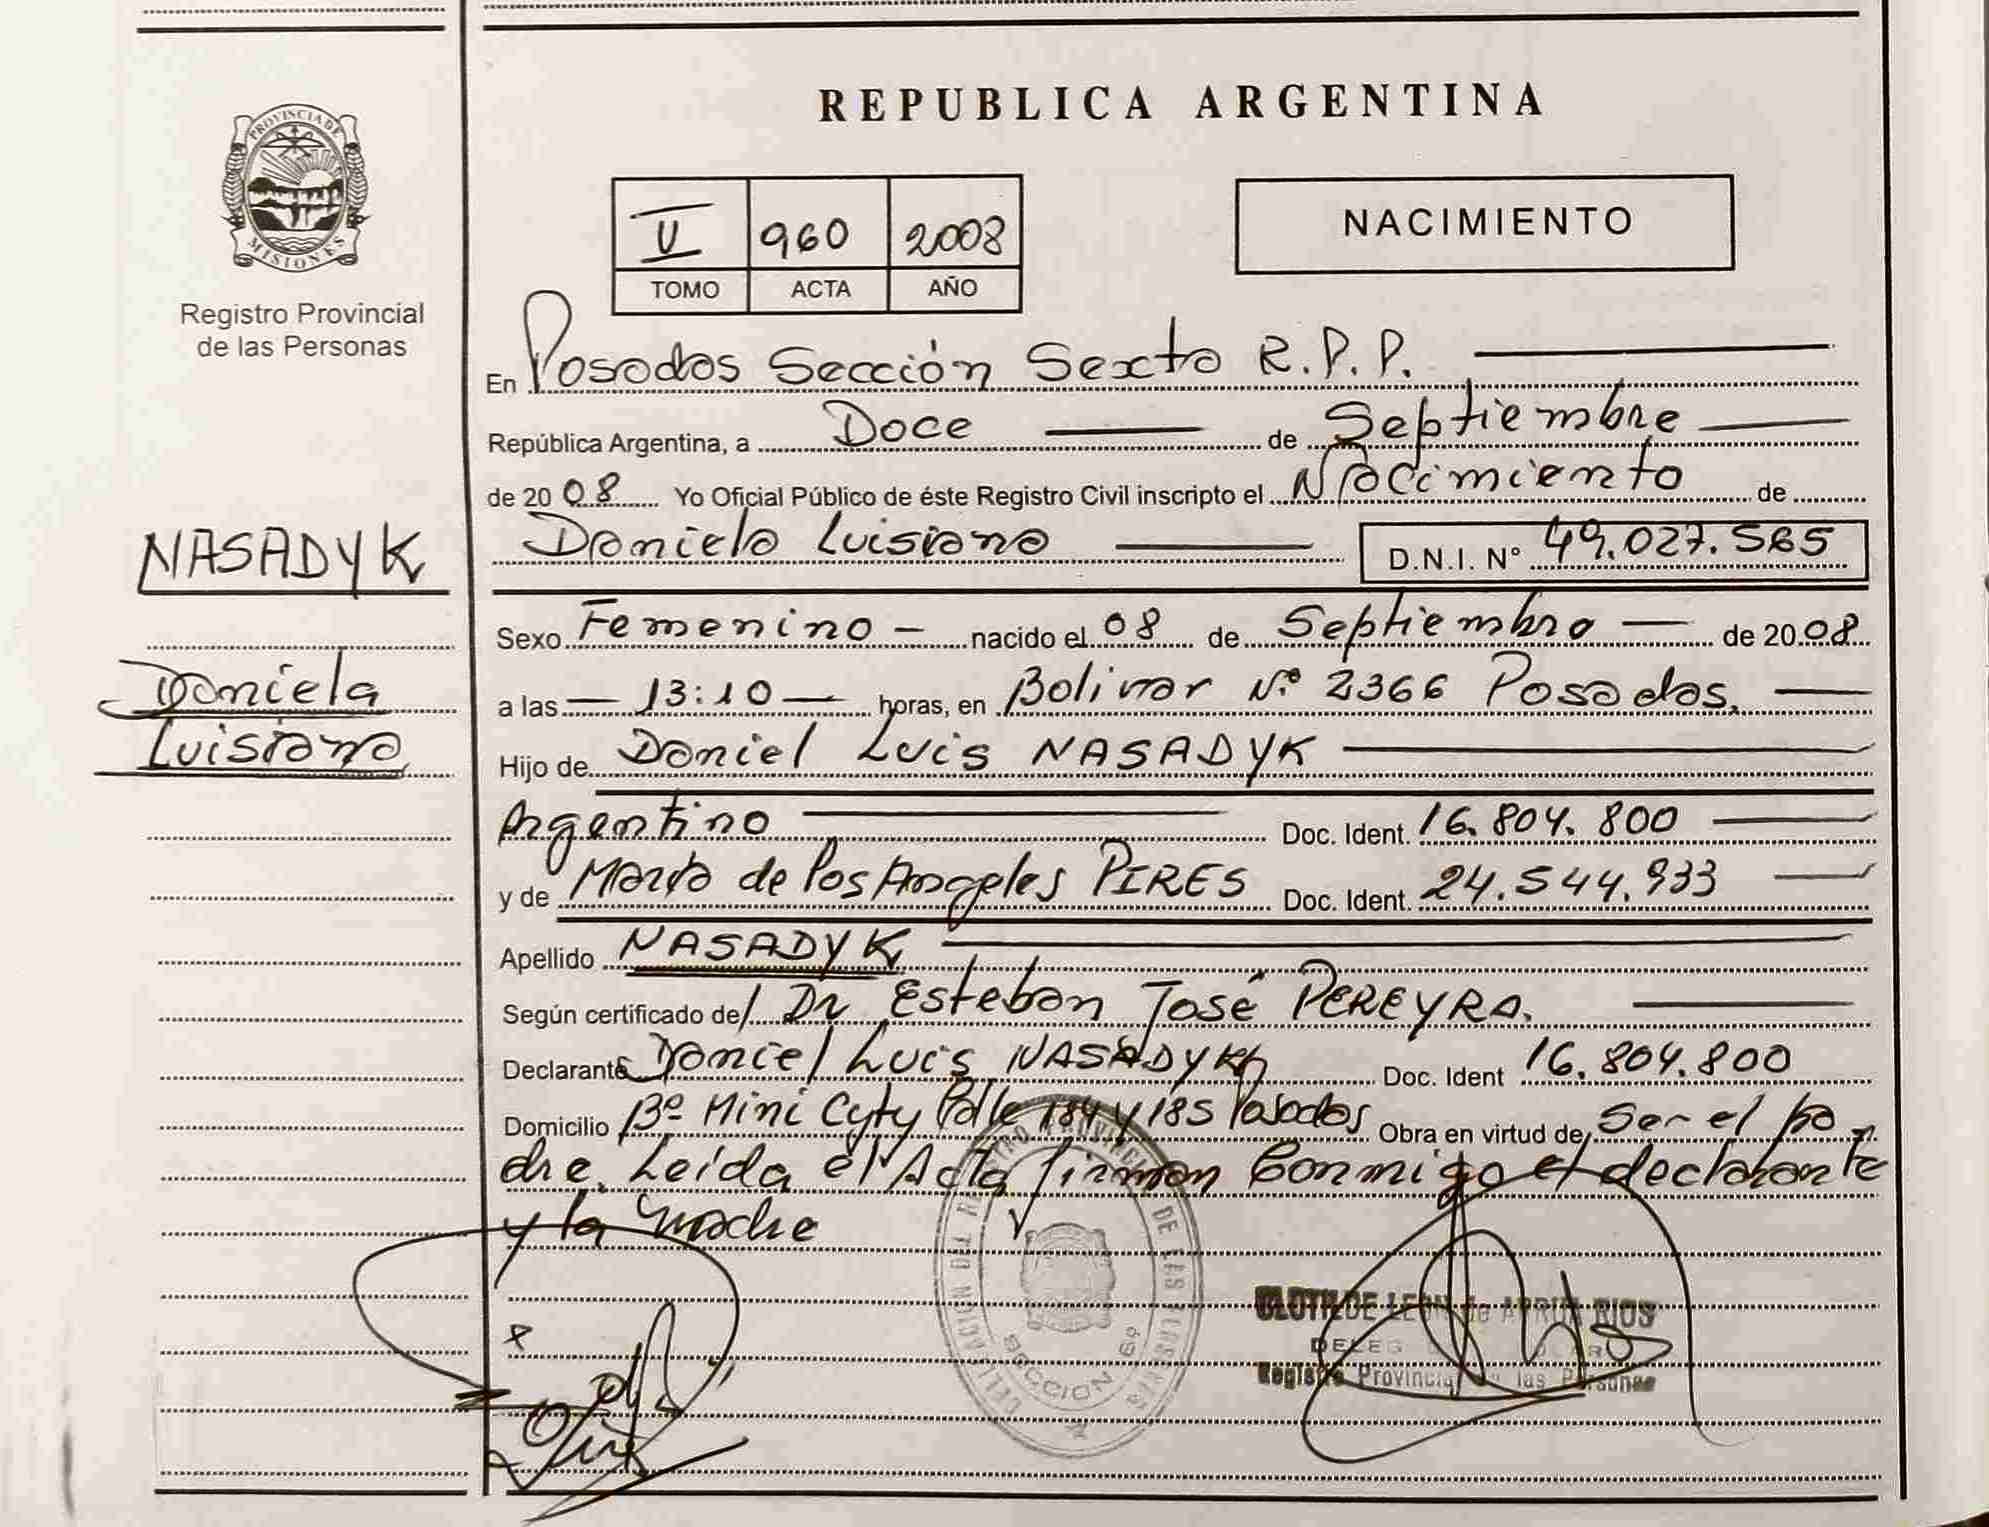 PROVINCIA DE
MISIONES
Registro Provincial
de las Personas
NASADYK
Daniela
Luisiana
REPUBLICA ARGENTINA
II 960 2008
TOMO ACTA AÑO
NACIMIENTO
En Posadas Sección Sexta R.P.P.
República Argentina, a Doce de Septiembre
de 2008 Yo Oficial Público de éste Registro Civil inscripto el Nacimiento de
Daniela Luisiana D.N.I. N° 49.027.565
Sexo Femenino - nacido el 08 de Septiembre de 2008
a las 13:10 horas, en Bolivar Nº 2366 Posadas.
Hijo de Daniel Luis NASADYK
Argentino Doc. Ident. 16.804.800
y de María de los Angeles PIRES Doc. Ident. 24.544.933
Apellido NASADYK
Según certificado de/l Dr Esteban José PEREYRA.
Declarante Daniel Luis NASADYK Doc. Ident 16.804.800
Domicilio Bº Mini Cyty Calle 184 y 185 Posadas Obra en virtud de Ser el pa
dre. Leída el Acta firman Conmigo el declarante
y la madre
SECCION 6ª
CLOTILDE LEON de ARRUA RIOS
Registro Provincial de las Personas